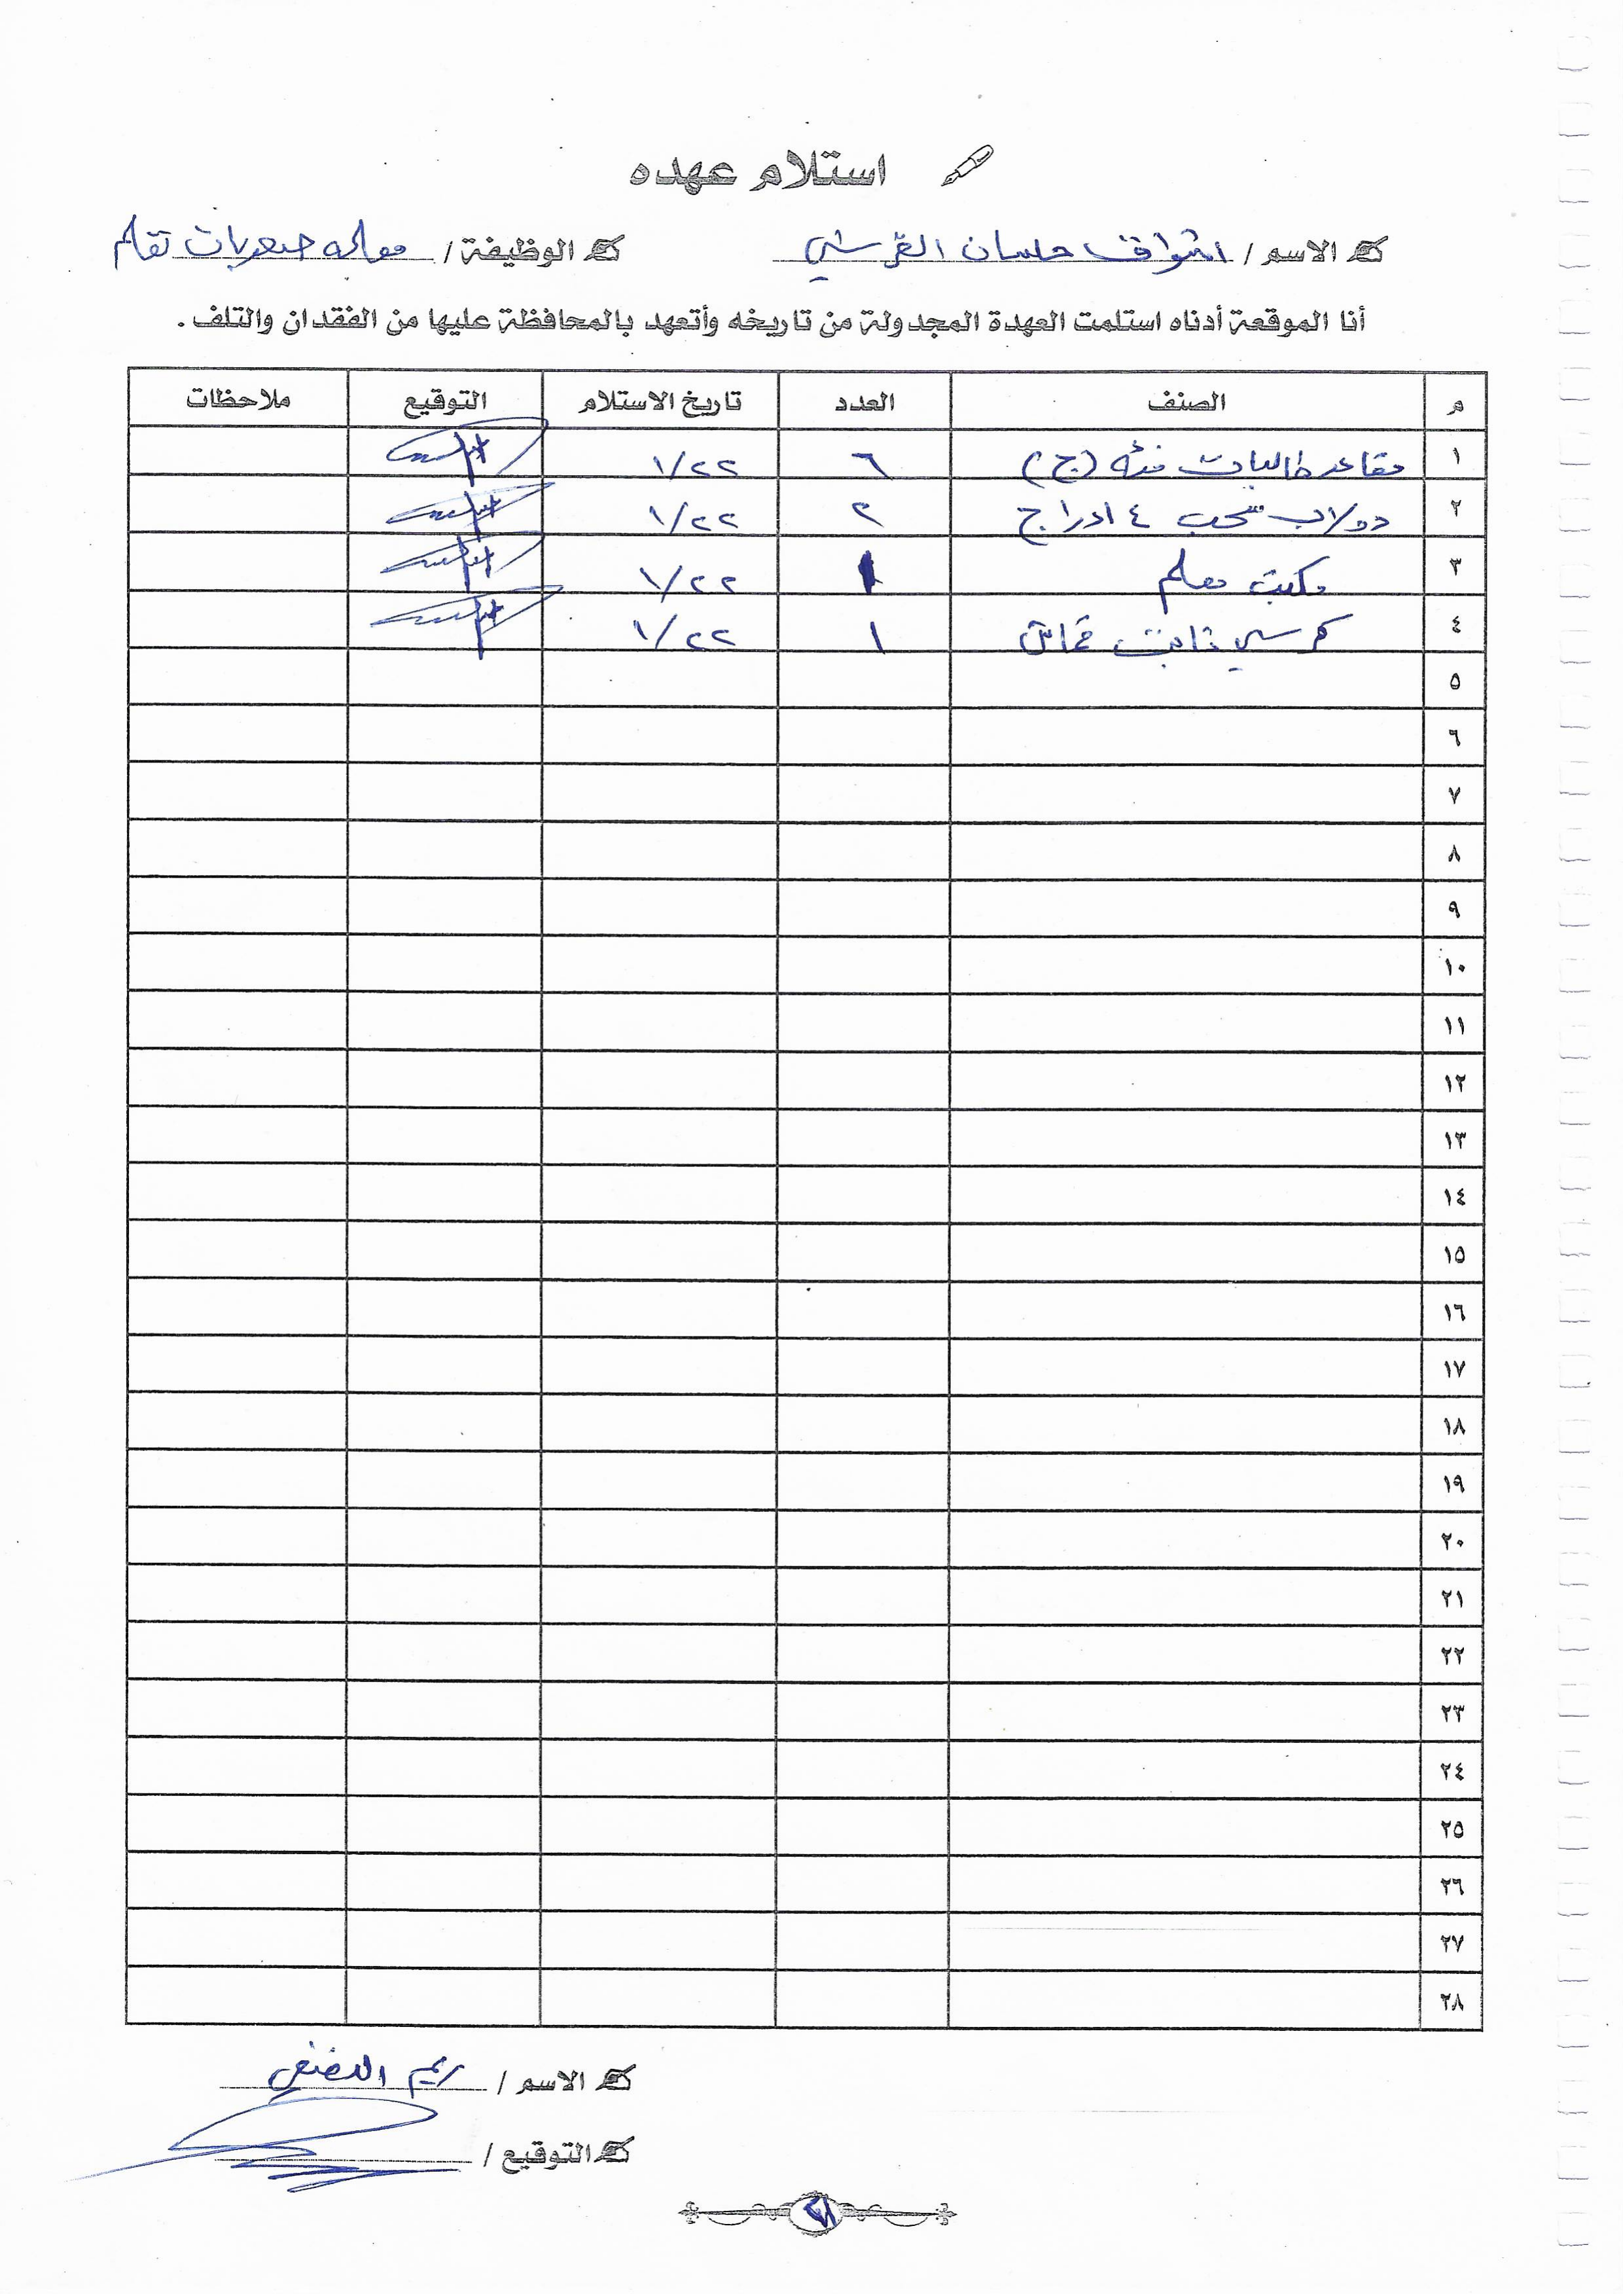 استلام عهده
الاسم / اشواق حسان القرشي
الوظيفة / معلمه صعوبات تعلم
أنا الموقعة أدناه استلمت العهدة المجدولة من تاريخه وأتعهد بالمحافظة عليها من الفقدان والتلف .
م الصنف العدد تاريخ الاستلام التوقيع ملاحظات
١ مقاعد طالبات فئه (ج) ٦ ١/٢٢
٢ دولاب سحب ٤ ادراج ٢ ١/٢٢
٣ مكتب معلم ١ ١/٢٢
٤ كرسي ثابت قماش ١ ١/٢٢
٥
٦
٧
٨
٩
١٠
١١
١٢
١٣
١٤
١٥
١٦
١٧
١٨
١٩
٢٠
٢١
٢٢
٢٣
٢٤
٢٥
٢٦
٢٧
٢٨
الاسم / ريم
التوقيع /